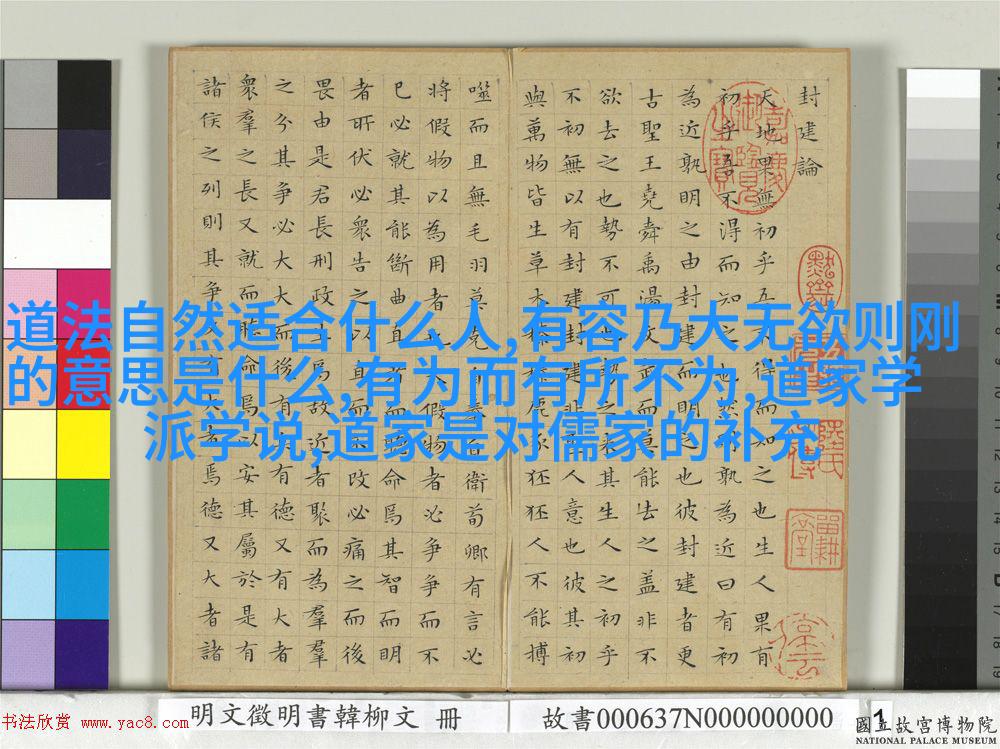 封建論
天地果無初乎吾不得而知之也生人果有
初乎吾不得而知之也然則孰為近曰有初
為近孰明之由封建而明之也彼封建者更
古聖王堯舜禹湯文武而莫能去之蓋非不
欲去之也勢不可也勢之來其生人之初乎
不初無以有封建封建非聖人意也彼其初
與萬物皆生草木榛榛鹿豕狉狉人不能搏
噬而且無毛羽莫克自奉自衛荀卿有言必
將假物以為用者也夫假物者必爭爭而不
已必就其能斷曲直者而聽命焉其智而明
者所伏必衆告之以直而不改必痛之而後
畏由是君長刑政生焉故近者聚而為羣羣
之分其爭必大大而後有兵有德又有大者
衆羣之長又就而聽命焉以安其屬於是有
諸侯之列則其爭又有大者焉德又大者諸
道法自然适合什么人,有容乃大无欲则刚
的意思是什么,有为而有所不为,道家学
派学说,道家是对儒家的补充
明文徵明書韓柳文 冊
故書000637N000000000
1
书法欣赏 www.yac8.com
國立故宮博物院
NATIONAL PALACE MUSEUM